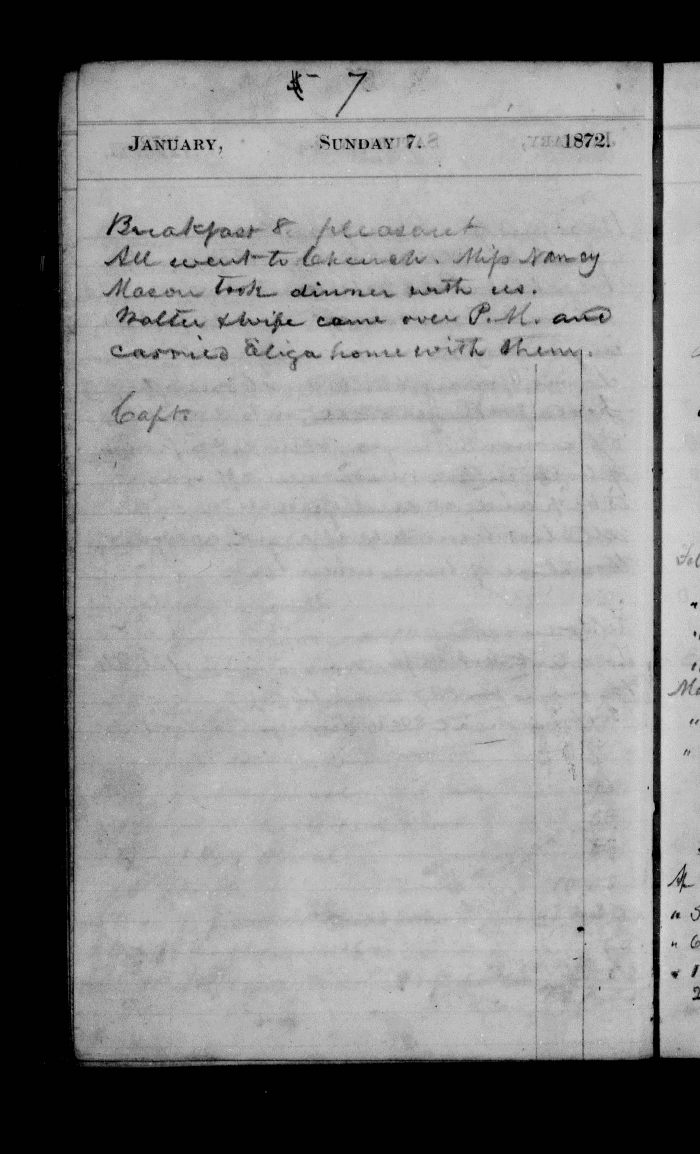 7
JANUARY, SUNDAY 7. 1872.
Breakfast 8 pleasant
All went to Church. Miss Nancy
Mason took dinner with us.
Walter & wife came over P.M. and
carried Eliza home with them.
Capt.